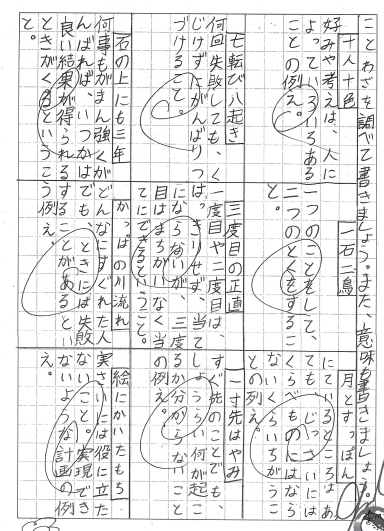 ことわざを調べて書きましょう。また、意味も書きましょう。
十人十色
好みや考えは、人に
よっていろいろある
ことの例え。
一石二鳥
一つのことをして、
二つのとくをするこ
と。
月とすっぽん
にているところはあ
っても、じっさいには
くらべものにはなら
ないくらいちがうこ
との例え。
七転び八起き
何回失敗しても、く
じけずにがんばりつ
づけること。
三度目の正直
一度目や二度目は、
はっきりせず、当て
にならないが、三度
目はまちがいなく当
てにできるということ。
一寸先はやみ
すぐ先のことでも、
しょうらい何が起こ
るか分からないこと
の例え。
石の上にも三年
何事もがまん強くが
んばれば、いつかは
良い結果が得られる
ときがくるというこ
と。
かっぱの川流れ
どんなにすぐれた人
でも、ときには失敗
することがあるとい
う例え。
絵にかいたもち
実さいには役に立た
ないこと。実現でき
ないような計画の例
え。